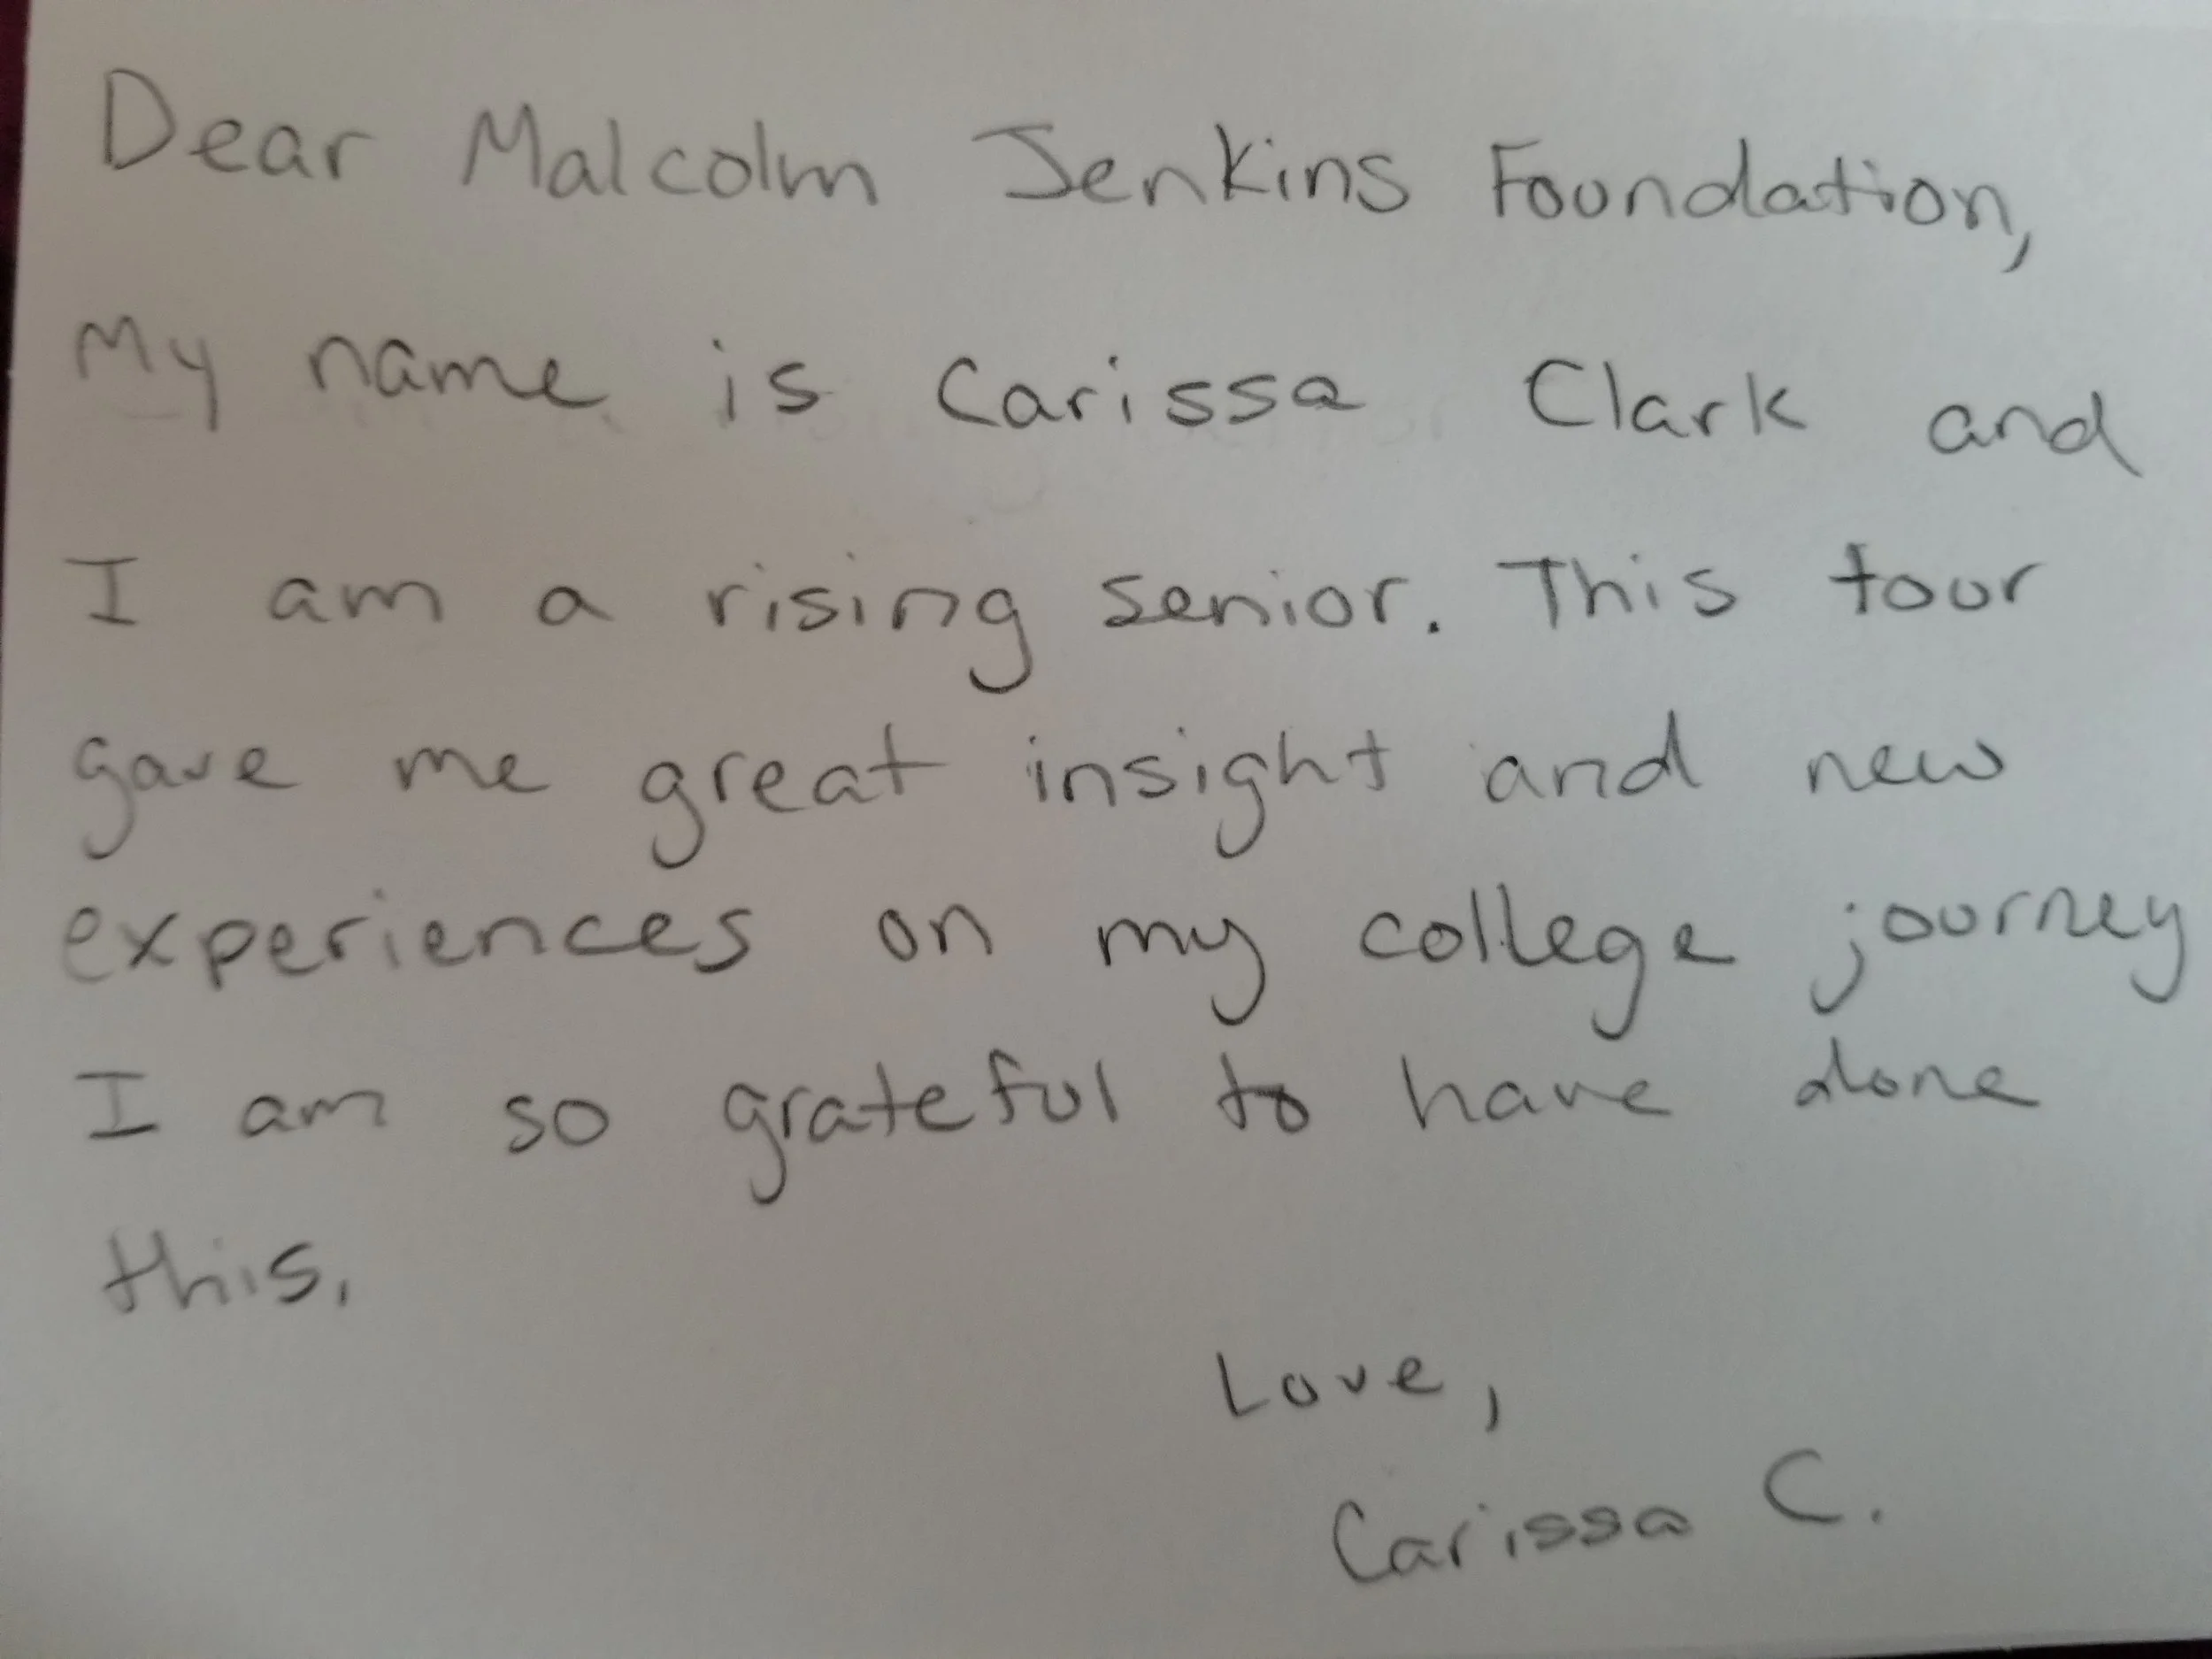 Dear Malcolm Jenkins Foundation,
My name is Carissa Clark and
I am a rising senior. This tour
gave me great insight and new
experiences on my college journey
I am so grateful to have done
this.
Love,
Carissa C.